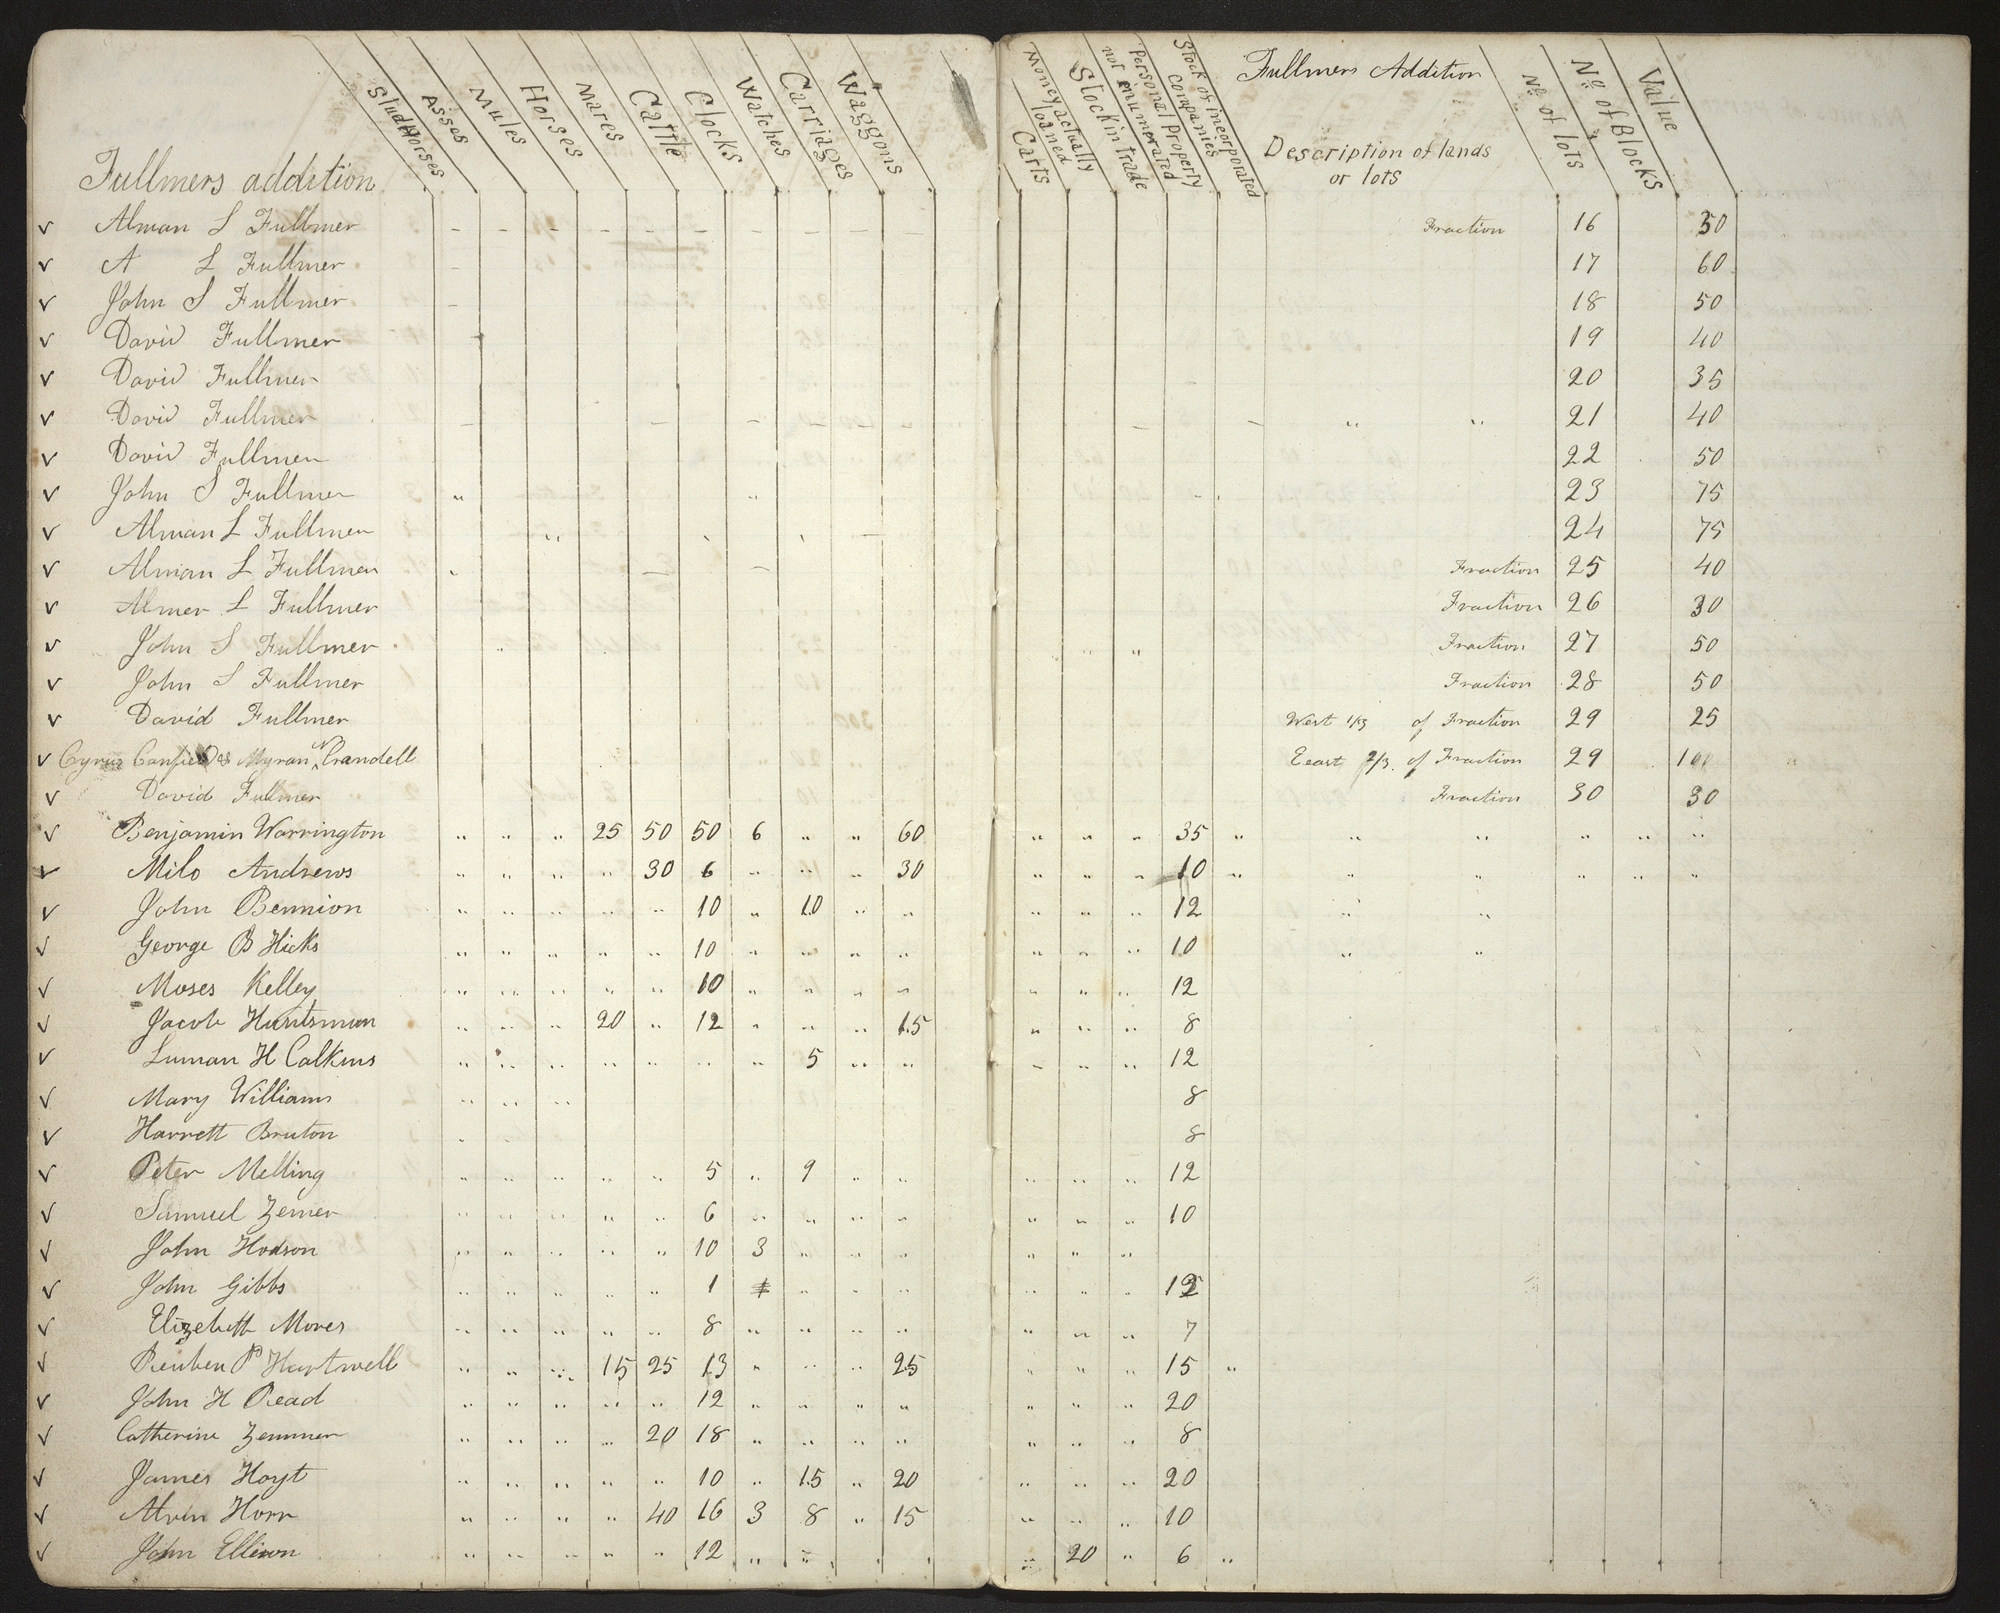 Stud Horses Asses Mules Horses Mares Cattle Clocks Watches Carriages Waggons Carts Money actually loaned Stock in trade Personal Property not enumerated Stock of incorporated companies Fullmers Addition Description of lands or lots No. of lots No. of Blocks Value
Fullmers addition
✓ Alman L Fullmer - - - - - - - - - - Fraction 16 50
✓ A L Fullmer - 17 60
✓ John S Fullmer - 18 50
✓ David Fullmer 19 40
✓ David Fullmer 20 35
✓ David Fullmer - - - - - - - " " 21 40
✓ David Fullmer 22 50
✓ John S Fullmer " " 23 75
✓ Alman L Fullmer " 24 75
✓ Alman L Fullmer Fraction 25 40
✓ Almer L Fullmer Fraction 26 30
✓ John S Fullmer Fraction 27 50
✓ John S Fullmer Fraction 28 50
✓ David Fullmer West 1/3 of Fraction 29 25
✓ Cyrus Canfield & Myran N Crandell Eeast 2/3 of Fraction 29 100
✓ David Fullmer Fraction 30 30
✓ Benjamin Warrington " " " 25 50 50 6 " " 60 " " " 35 " " " " " "
✓ Milo Andrews " " " " 30 6 " " " 30 " " " 10 " " " " " "
✓ John Bennion " " " " " 10 " 10 " " " " " 12 " "
✓ George B Hicks " " " " " 10 " " " " " " " 10 " "
✓ Moses Kelley " " " " " 10 " " " " " " " 12
✓ Jacob Huntsman " " " 20 " 12 " " " 15 " " " 8
✓ Luman H Calkins " " " " " " " 5 " " " " " 12
✓ Mary Williams " " " 8
✓ Harrett Bruton " 8
✓ Peter Melling " " " " " 5 " 9 " " " " " 12
✓ Samuel Zemer " " " " " 6 " " " " " " " 10
✓ John Hodson " " " " " 10 3 " " " " " "
✓ John Gibbs " " " " " 1 " " " " " " 12
✓ Elizebeth Mores " " " " " 8 " " " " " " " 7
✓ Reuben P Hartwell " " " 15 25 13 " " " 25 " " " 15 "
✓ John H Read " " " " " 12 " " " " " " " 20
✓ Catherine Zemmer " " " " 20 18 " " " " " " " 8
✓ James Hoyt " " " " " 10 " 15 " 20 " " " 20
✓ Alvin Horr " " " " 40 16 3 8 " 15 " " " 10
✓ John Ellison " " " " " 12 " " " 20 " 6 "